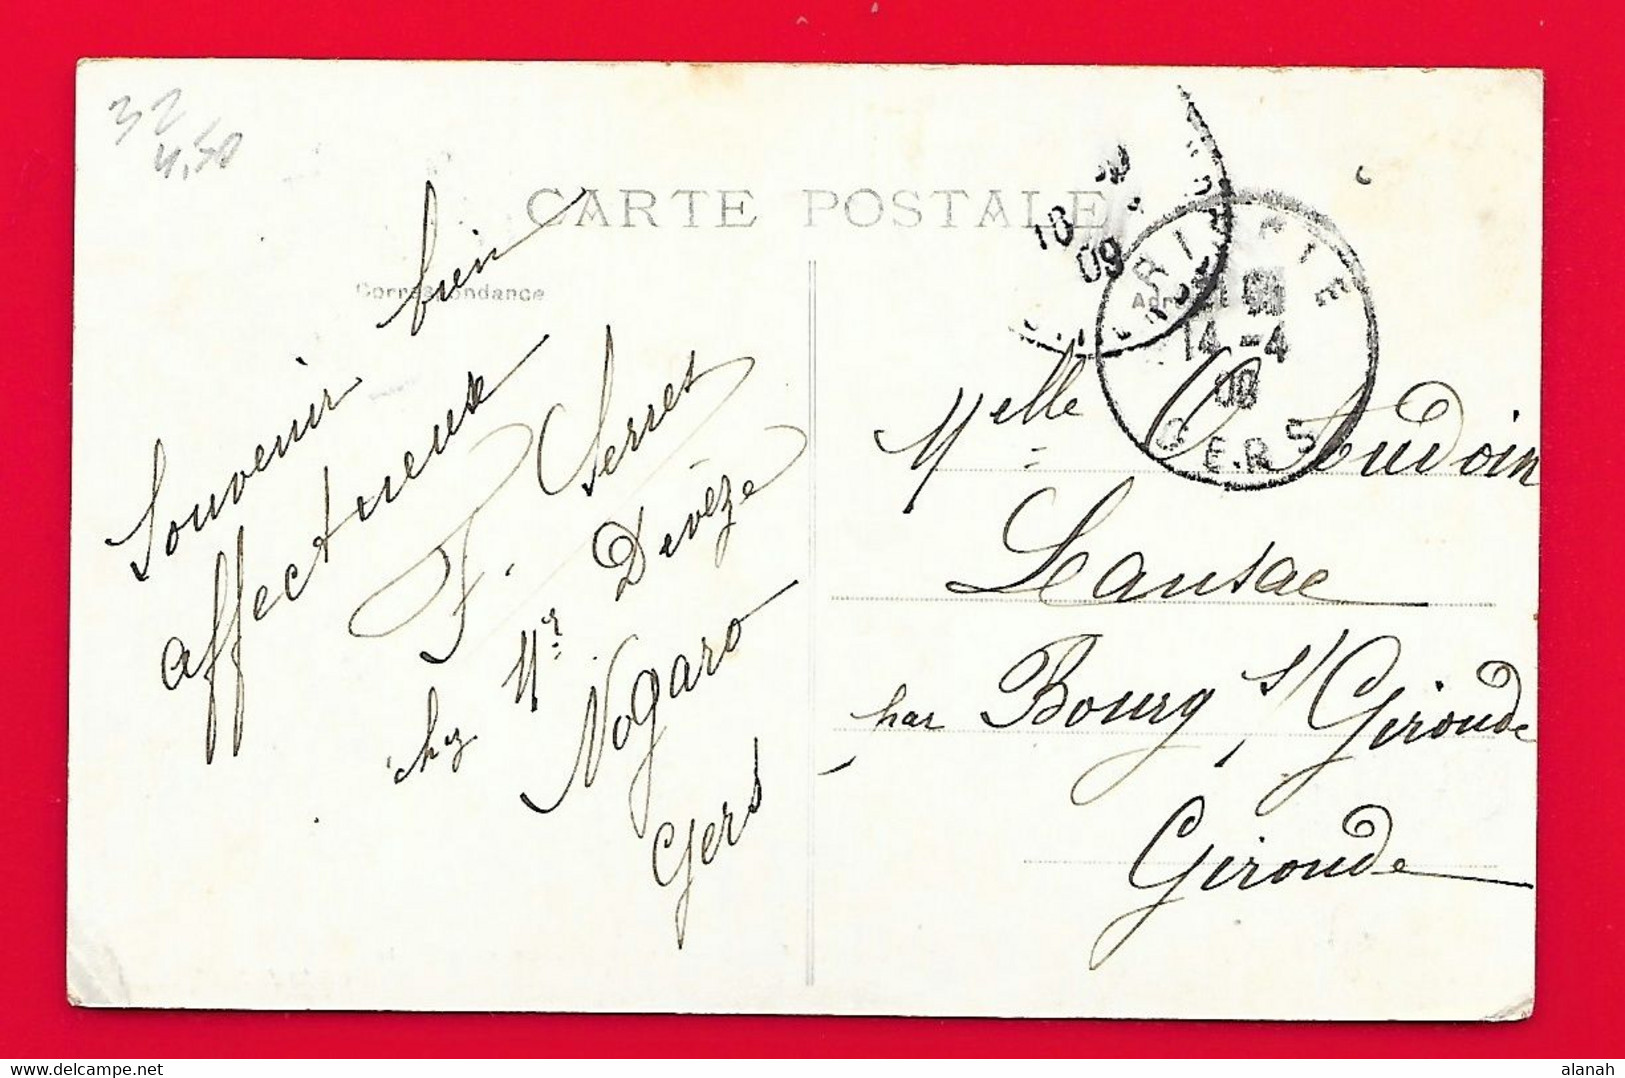 32
4,50
CARTE POSTALE
Correspondance
Souvenir bien
affectueux
F. Serres
chez Mr Devèze
Nogaro
Gers
18
09
14-4
09
GERS
Melle Oudoin
Lansac
par Bourg s/ Gironde
Gironde
delcampe.net
alanah